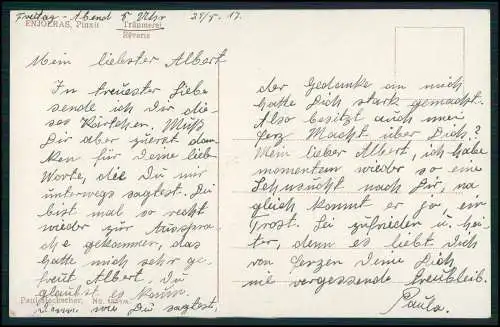 Freitag - Abend 5 Uhr 24/5. 17.
ENJOLRAS, Pinxit Träumerei
Rêverie
Mein liebster Albert
In treuester Liebe
sende ich Dir die-
ses Kärtchen. Muß
Dir aber zuerst dan-
ken für Deine lieb
Worte, die Du mir
unterwegs sagtest. Du
bist mal so recht
wieder zur Ausspra-
che gekommen, das
hatte mich sehr ge-
freut Albert, Du
glaubst es kaum.
Denn wie Du sagtest,
Paul Heckscher, No.
der Gedanke an mich
hatte Dich stark gemacht.
Also besitzt auch mein
Herz Macht über Dich?
Mein lieber Albert, ich habe
momentan wieder so eine
Sehnsucht nach Dir, na
gleich kommt er ja, ein
Trost. Sei zufrieden u. hei-
ter, denn es liebt Dich
von Herzen Deine Dich
nie vergessende Treulieb.
Paula.